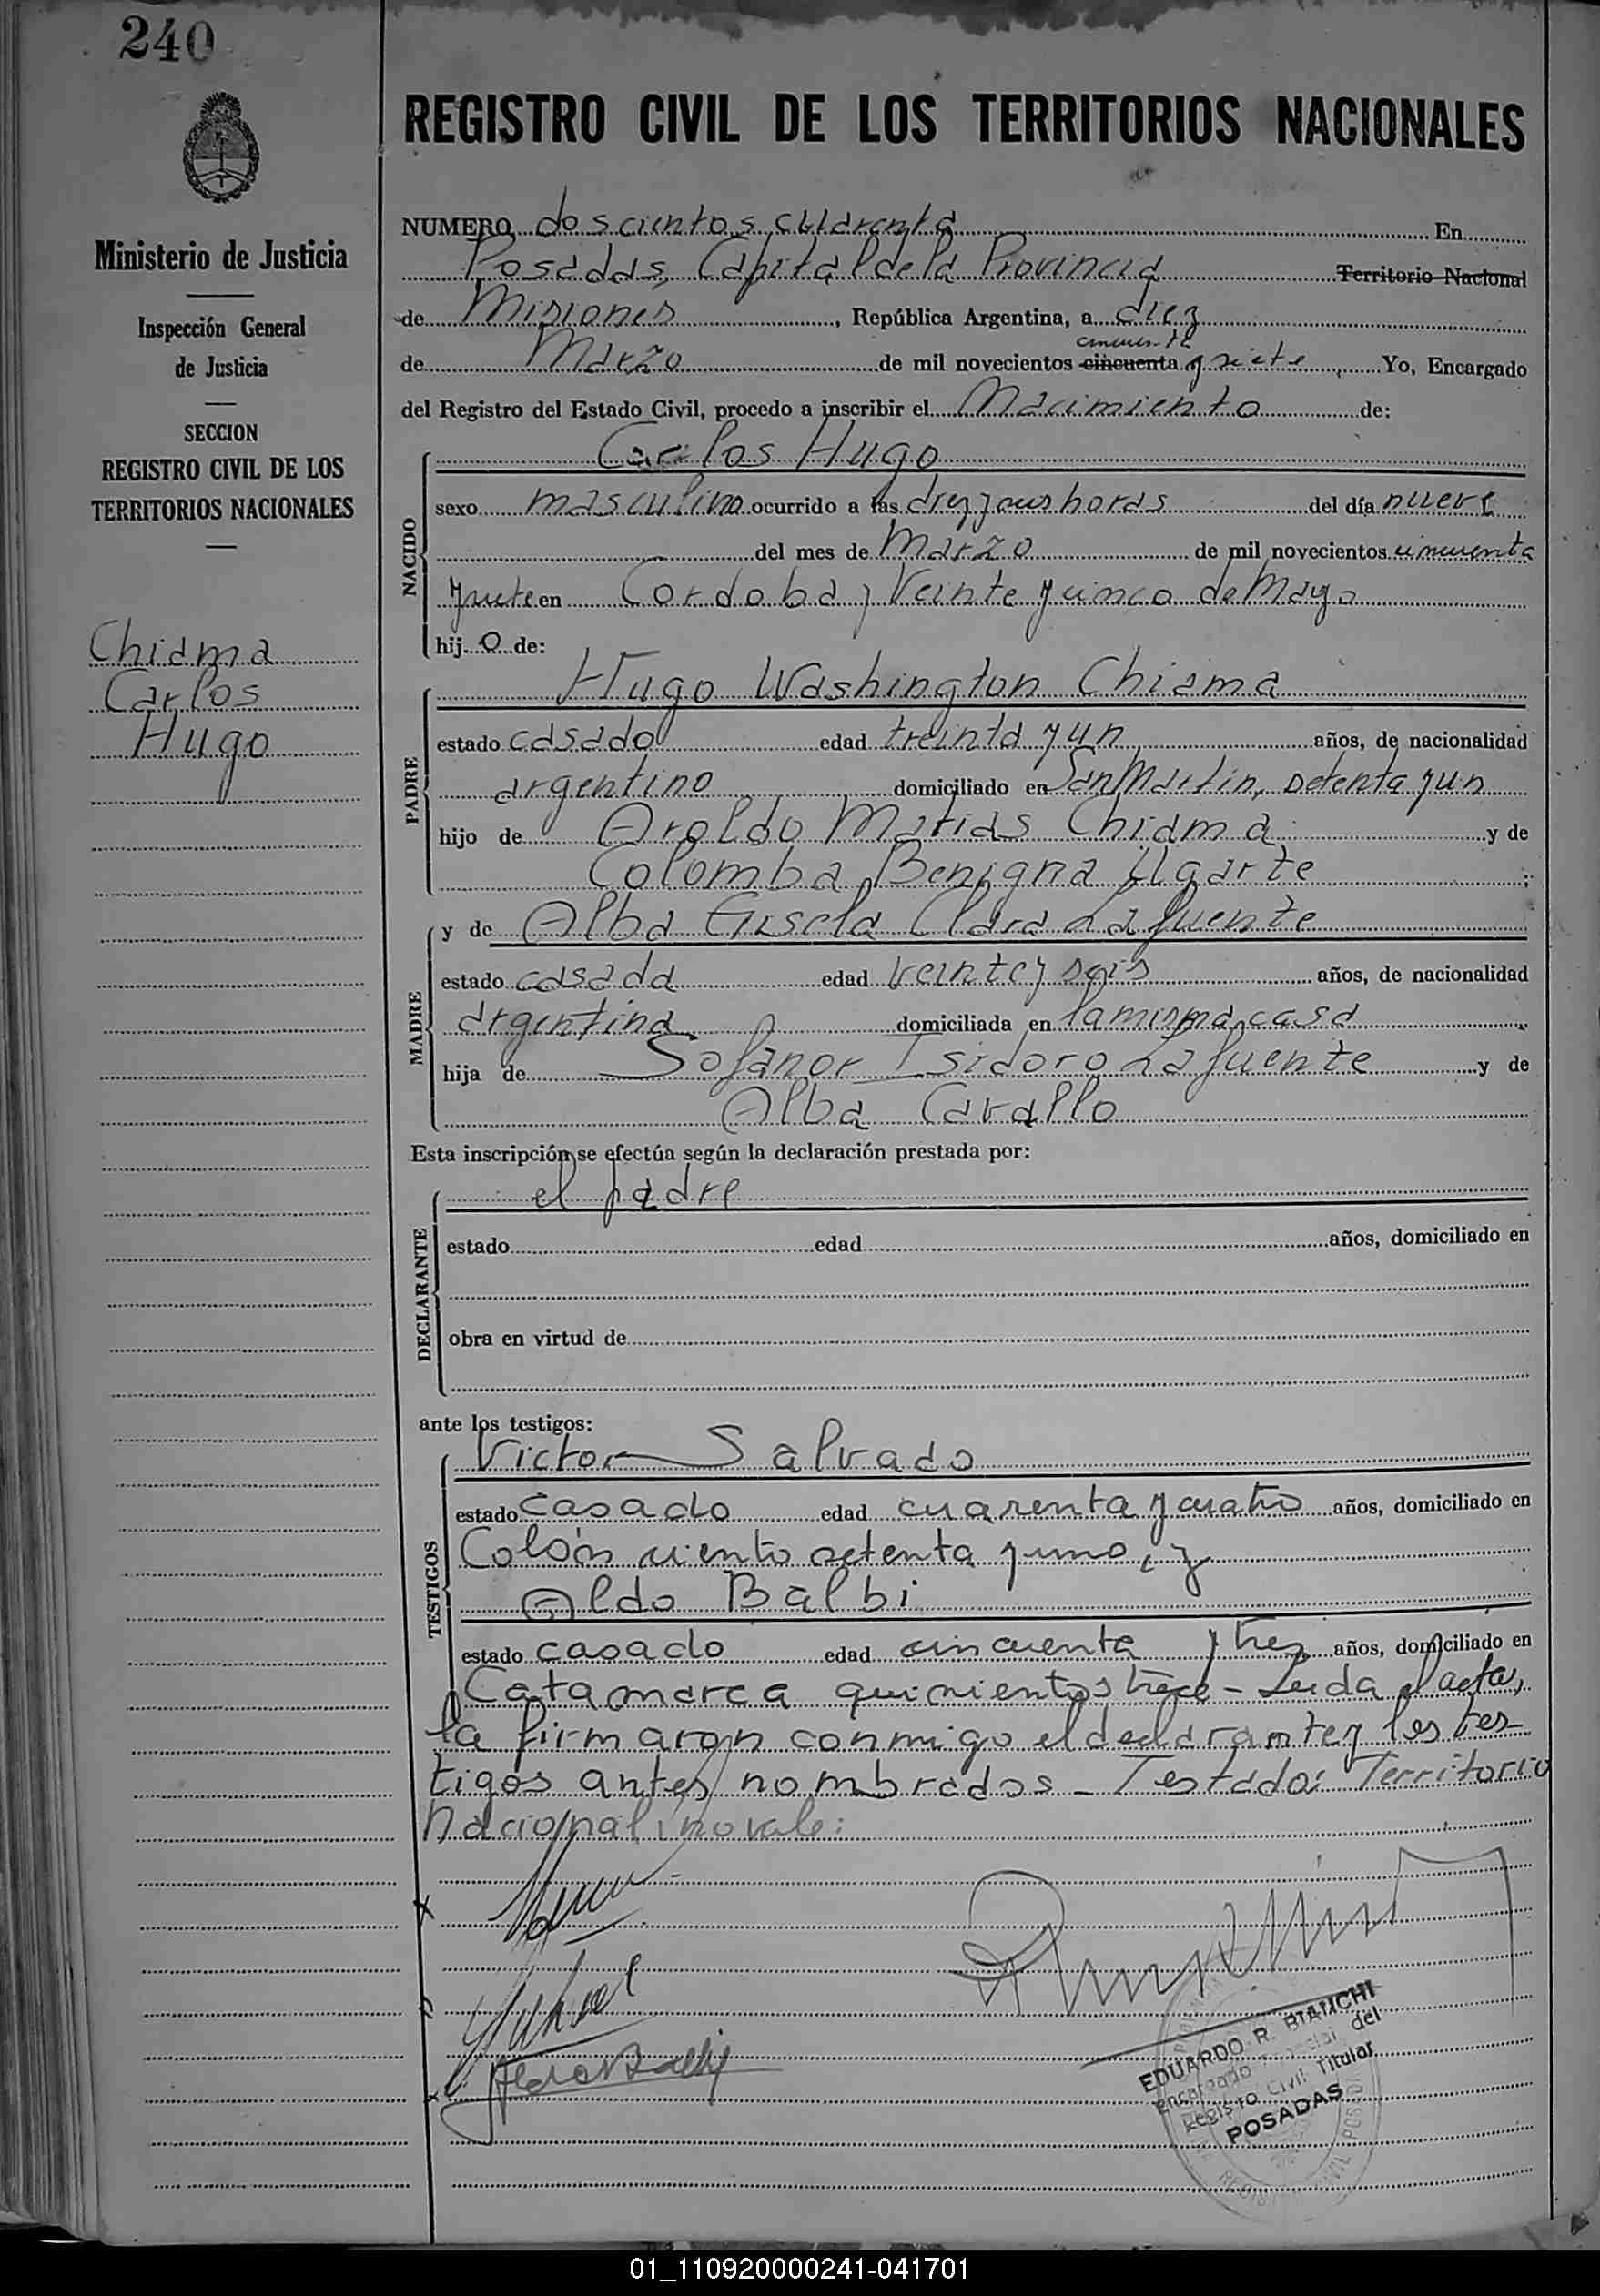 240
Ministerio de Justicia
Inspección General
de Justicia
SECCION
REGISTRO CIVIL DE LOS
TERRITORIOS NACIONALES
Chiama
Carlos
Hugo
REGISTRO CIVIL DE LOS TERRITORIOS NACIONALES
NUMERO doscientos cuarenta En
Posadas, Capital de la Provincia Territorio Nacional
de Misiones, República Argentina, a diez
cincuenta
de Marzo de mil novecientos cincuenta y siete, Yo, Encargado
del Registro del Estado Civil, procedo a inscribir el Nacimiento de:
NACIDO
Carlos Hugo
sexo masculino ocurrido a las diez y seis horas del día nueve
del mes de Marzo de mil novecientos cincuenta
y siete en Cordoba y Veinte y cinco de Mayo
hij o de:
PADRE
Hugo Washington Chiama
estado casado edad treinta y un años, de nacionalidad
argentino domiciliado en San Martin, setenta y un
hijo de Aroldo Matias Chiama y de
Colomba Benigna Ugarte ;
MADRE
y de Alba Gisela Clara Lafuente
estado casada edad veinte y seis años, de nacionalidad
argentina domiciliada en la misma casa
hija de Sofanor Isidoro Lafuente y de
Alba Cavallo
Esta inscripción se efectúa según la declaración prestada por:
DECLARANTE
el padre
estado edad años, domiciliado en
obra en virtud de
ante los testigos:
TESTIGOS
Victor Salvado
estado casado edad cuarenta y cuatro años, domiciliado en
Colón ciento setenta y uno, y
Aldo Balbi
estado casado edad cincuenta y tres años, domiciliado en
Catamarca quinientos trece - Leida el acta,
la firmaron conmigo el declarante y los tes-
tigos antes nombrados - Testado: Territorio
nacional: no vale:
EDUARDO R. BIANCHI
Encargado Titular del
Registro Civil Titular
POSADAS
01_110920000241-041701